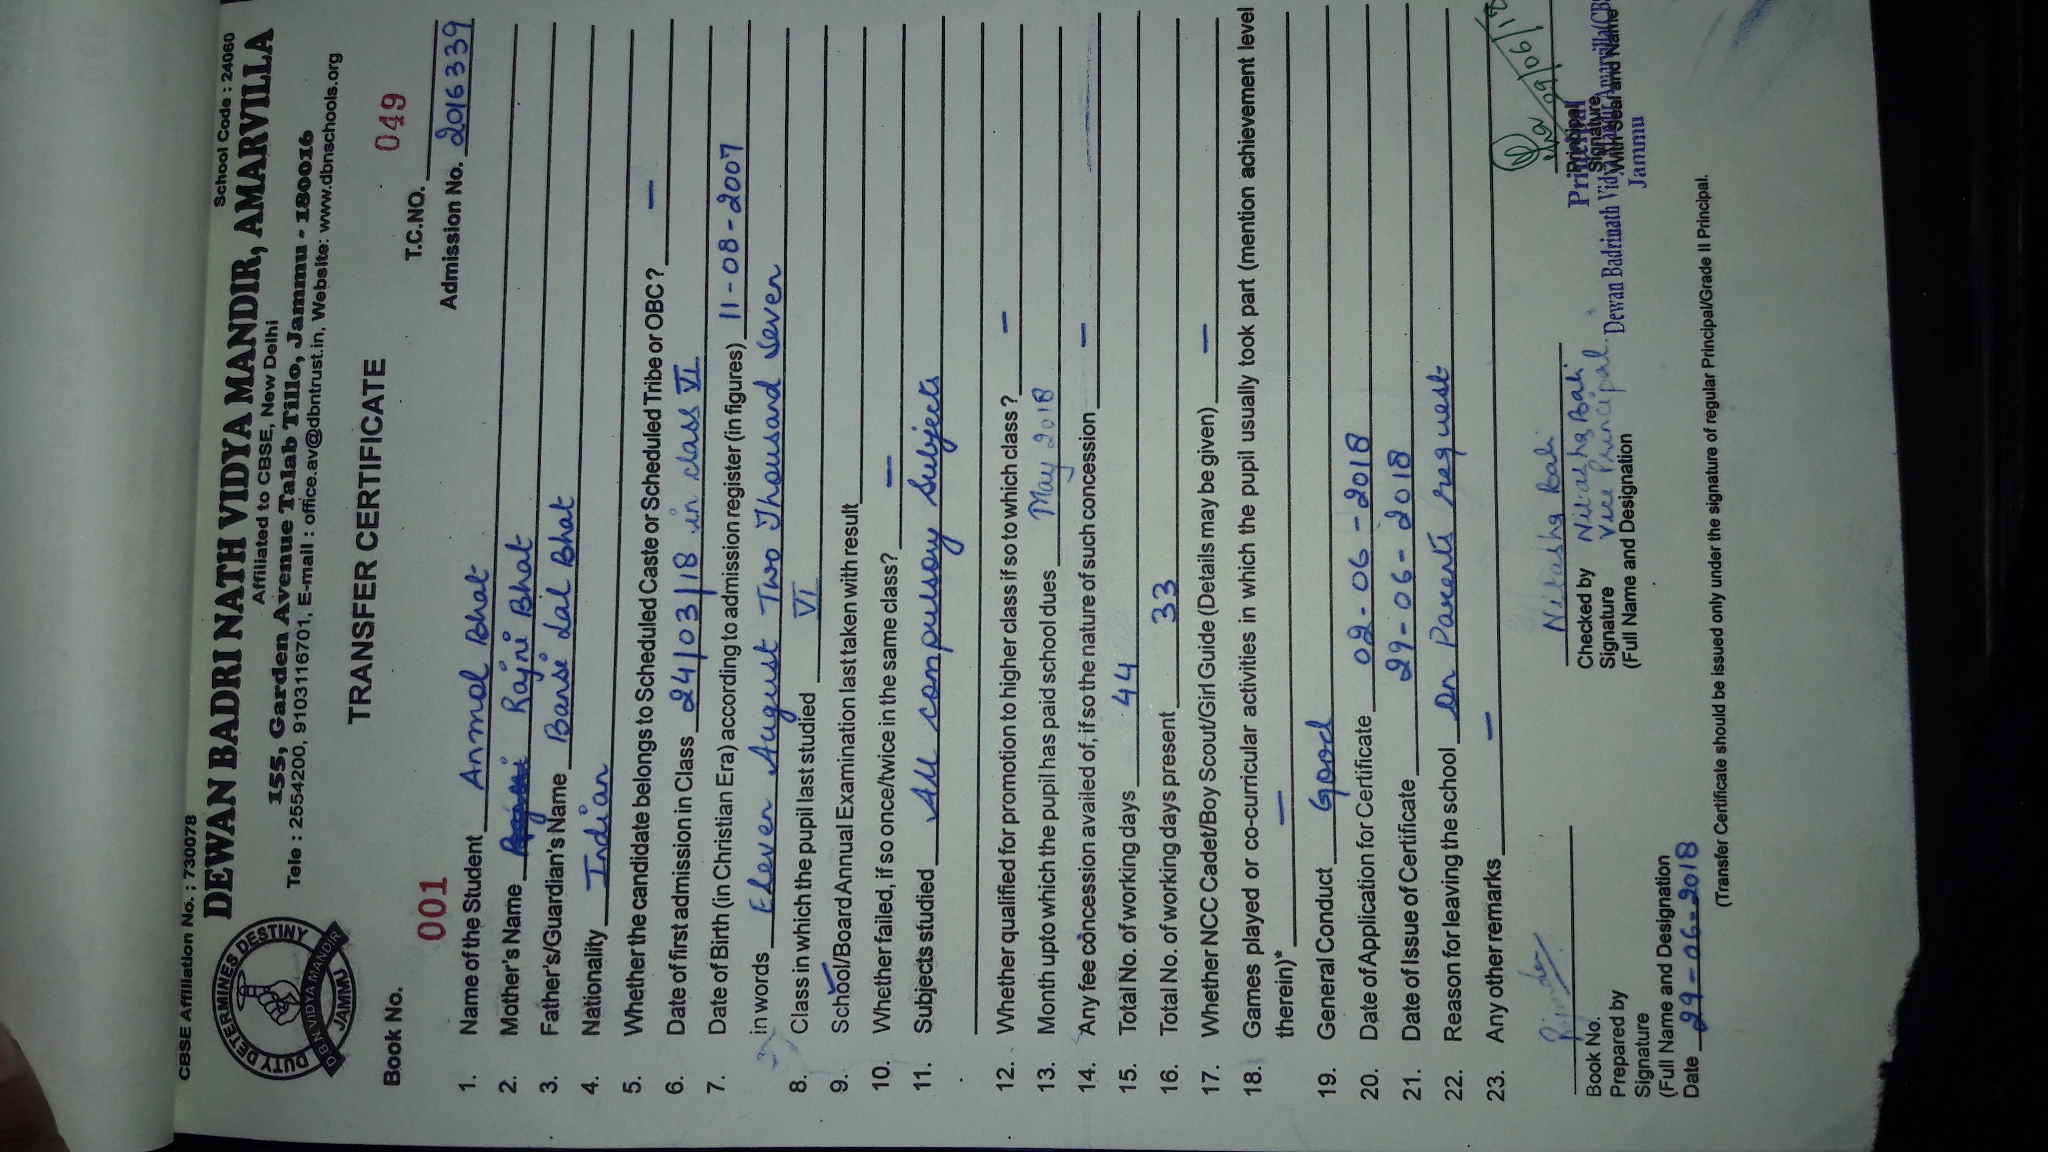 CBSE Affiliation No. : 730078 School Code : 24060
DEWAN BADRI NATH VIDYA MANDIR, AMARVILLA
Affiliated to CBSE, New Delhi
155, Garden Avenue Talab Tillo, Jammu - 180016
Tele : 2554200, 9103116701, E-mail : office.av@dbntrust.in, Website: www.dbnschools.org
DUTY DETERMINES DESTINY
D.B.N. VIDYA MANDIR
JAMMU
TRANSFER CERTIFICATE
Book No. 001 T.C.NO. 049
Admission No. 2016339
1. Name of the Student Anmol Bhat
2. Mother's Name Rajni Bhat
3. Father's/Guardian's Name Bansi Lal Bhat
4. Nationality Indian
5. Whether the candidate belongs to Scheduled Caste or Scheduled Tribe or OBC? —
6. Date of first admission in Class 24/03/18 in class VI
7. Date of Birth (in Christian Era) according to admission register (in figures) 11-08-2007
in words Eleven August Two Thousand Seven
8. Class in which the pupil last studied VI
9. School/Board Annual Examination last taken with result
10. Whether failed, if so once/twice in the same class? —
11. Subjects studied All compulsory Subjects
12. Whether qualified for promotion to higher class if so to which class? —
13. Month upto which the pupil has paid school dues May 2018
14. Any fee concession availed of, if so the nature of such concession —
15. Total No. of working days 44
16. Total No. of working days present 33
17. Whether NCC Cadet/Boy Scout/Girl Guide (Details may be given) —
18. Games played or co-curricular activities in which the pupil usually took part (mention achievement level
therein)* —
19. General Conduct Good
20. Date of Application for Certificate 02-06-2018
21. Date of Issue of Certificate 29-06-2018
22. Reason for leaving the school On Parents request
23. Any other remarks —
Book No.
Prepared by
Signature
(Full Name and Designation
Date 29-06-2018
Checked by
Signature
(Full Name and Designation
Bali
Bali
Vice Principal.
29/06/18
Principal
Signature
With Seal and Name
Principal
Dewan Badrinath Vidya Mandir Amarvilla(CB
Jammu
(Transfer Certificate should be issued only under the signature of regular Principal/Grade II Principal.